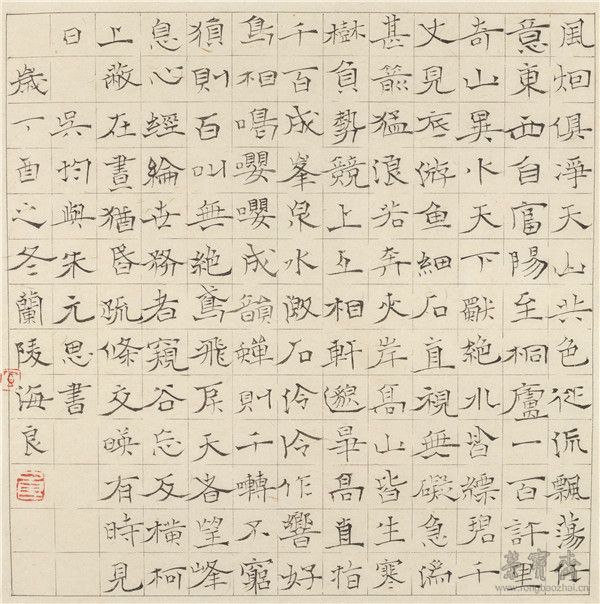 風烟俱淨天山共色從流飄蕩任
意東西自富陽至桐廬一百許里
奇山異水天下獨絕水皆縹碧千
丈見底游魚細石直視無礙急湍
甚箭猛浪若奔夾岸高山皆生寒
樹負勢競上互相軒邈高直指
千百成峯泉水激石伶伶作響好
鳥相鳴嚶嚶成韻蟬則千囀不窮
猿則百叫無絕鳶飛戾天者望峰
息心經綸世務者窺谷忘反橫柯
上蔽在晝猶昏疏條交暎有時見
日 吳均與朱元思書
歲丁酉之冬蘭陵海良
榮寶齋
www.rongbaozhai.cn